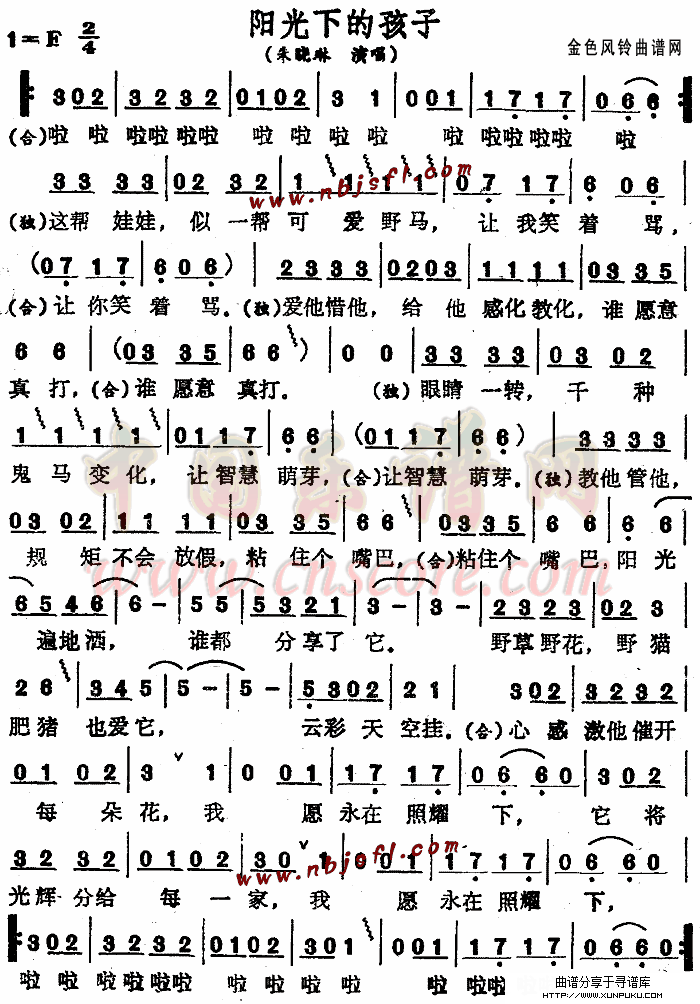 阳光下的孩子
1=E 2/4
(朱晓琳 演唱)
金色风铃曲谱网
302 | 3232 | 0102 | 3 1 | 001 | 1717 | 066
(合)啦 啦 啦啦 啦啦 啦 啦 啦 啦 啦 啦啦啦啦 啦
33 33 | 02 32 | 1 1 1 1 | 0717 | 6 06
www.nbjsfl.com
(独)这帮 娃娃, 似 一帮 可 爱野马, 让 我笑着 骂,
(0717 | 606) | 2333 | 0203 | 1111 | 0335
(合)让你笑 着 骂。(独)爱他惜他, 给 他 感化教化, 谁愿意
6 6 | (03 35 | 66) | 0 0 | 33 33 | 03 02
真 打, (合)谁 愿意 真打。 (独)眼睛 一转, 千 种
1 1 1 1 | 0117 | 66 | (0117 | 66) | 3333
鬼 马 变 化, 让智慧 萌芽, (合)让智慧 萌芽。(独)教他管他,
03 02 | 11 11 | 03 35 | 66 | (0335 | 66) | 6 6
规 矩 不会 放假, 粘 住个 嘴巴, (合)粘住个 嘴巴, 阳光
6546 | 6 - | 55 | 5321 | 3 - | 3 - | 2323 | 023
遍地洒, 谁都 分享了它。 野草野花, 野猫
26 | 345 | 5 - | 5 - | 5302 | 21 | 302 | 3232
肥猪 也爱它, 云彩天空挂。(合)心感激他催开
01 02 | 3 1 | 0 01 | 17 17 | 06 60 | 302
每 朵花, 我 愿 永在 照耀 下, 它 将
32 32 | 0102 | 30 1 | 001 | 1717 | 06 60
www.nbjsfl.com
光辉 分给 每 一 家, 我 愿 永在 照耀 下,
302 | 3232 | 0102 | 3 1 | 001 | 1717 | 0660
啦 啦 啦啦 啦啦 啦 啦 啦 啦 啦 啦啦 啦啦 啦
中国乐谱网
www.cnscore.com
曲谱分享于寻谱库
HTTP://WWW.XUNPUKU.COM